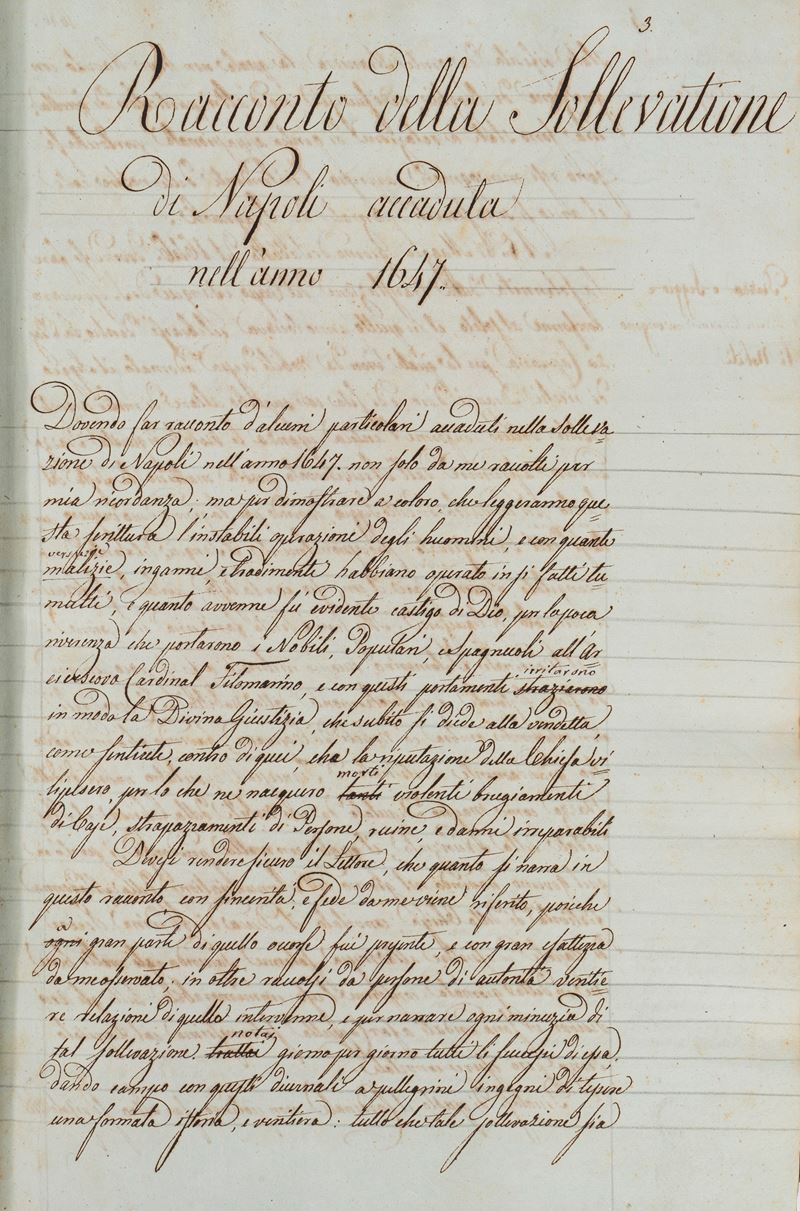 3.
Racconto della Sollevatione
di Napoli accaduta
nell'anno 1647.
Dovendo far racconto d'alcuni particolari accaduti nella Solleva=
zione di Napoli nell'anno 1647. non solo da me raccolti per
mia ricordanza; ma per dimostrare a coloro, che leggeranno que=
sta scrittura l'instabili operazioni degli huomini, e con quante
malizie, inganni, e tradimenti habbiano operato in si fatti tu=
multi, e quanto avvenne fù evidente castigo di Dio, per la poca
riverenza che portarono i Nobili, Populari, e Spagnuoli all'Ar=
civescovo Cardinal Filomarino, e con questi portamenti
irritarono
strazzarono
in modo la Divina Giustizia, che subito si diede alla vendetta,
come sentirete, contro di quei, che la riputazione della Chiesa vi=
lipesero, per lo che ne nacquero
morti
tanti violenti brugiamenti
di Case, strapazzamenti di Persone, ruine, e danni irreparabili
Devesi rendere sicuro il Lettore, che quanto si narra in
questo racconto con sincerità, e fede da me viene riferito, poiche
ogni gran parte di quello occorse fui presente, e con gran esattezza
da me osservato; in oltre raccolsi da persone di autorità veritie=
re relazioni di quello intervenne, e per narrare ogni minuzia di
tal sollevazione
notai
giorno per giorno tutti li successi di essa,
dando campo con questi diurnali a pellegrini ingegni di tessere
una formata istoria, e veritiera: tutto che tale sollevazione sia